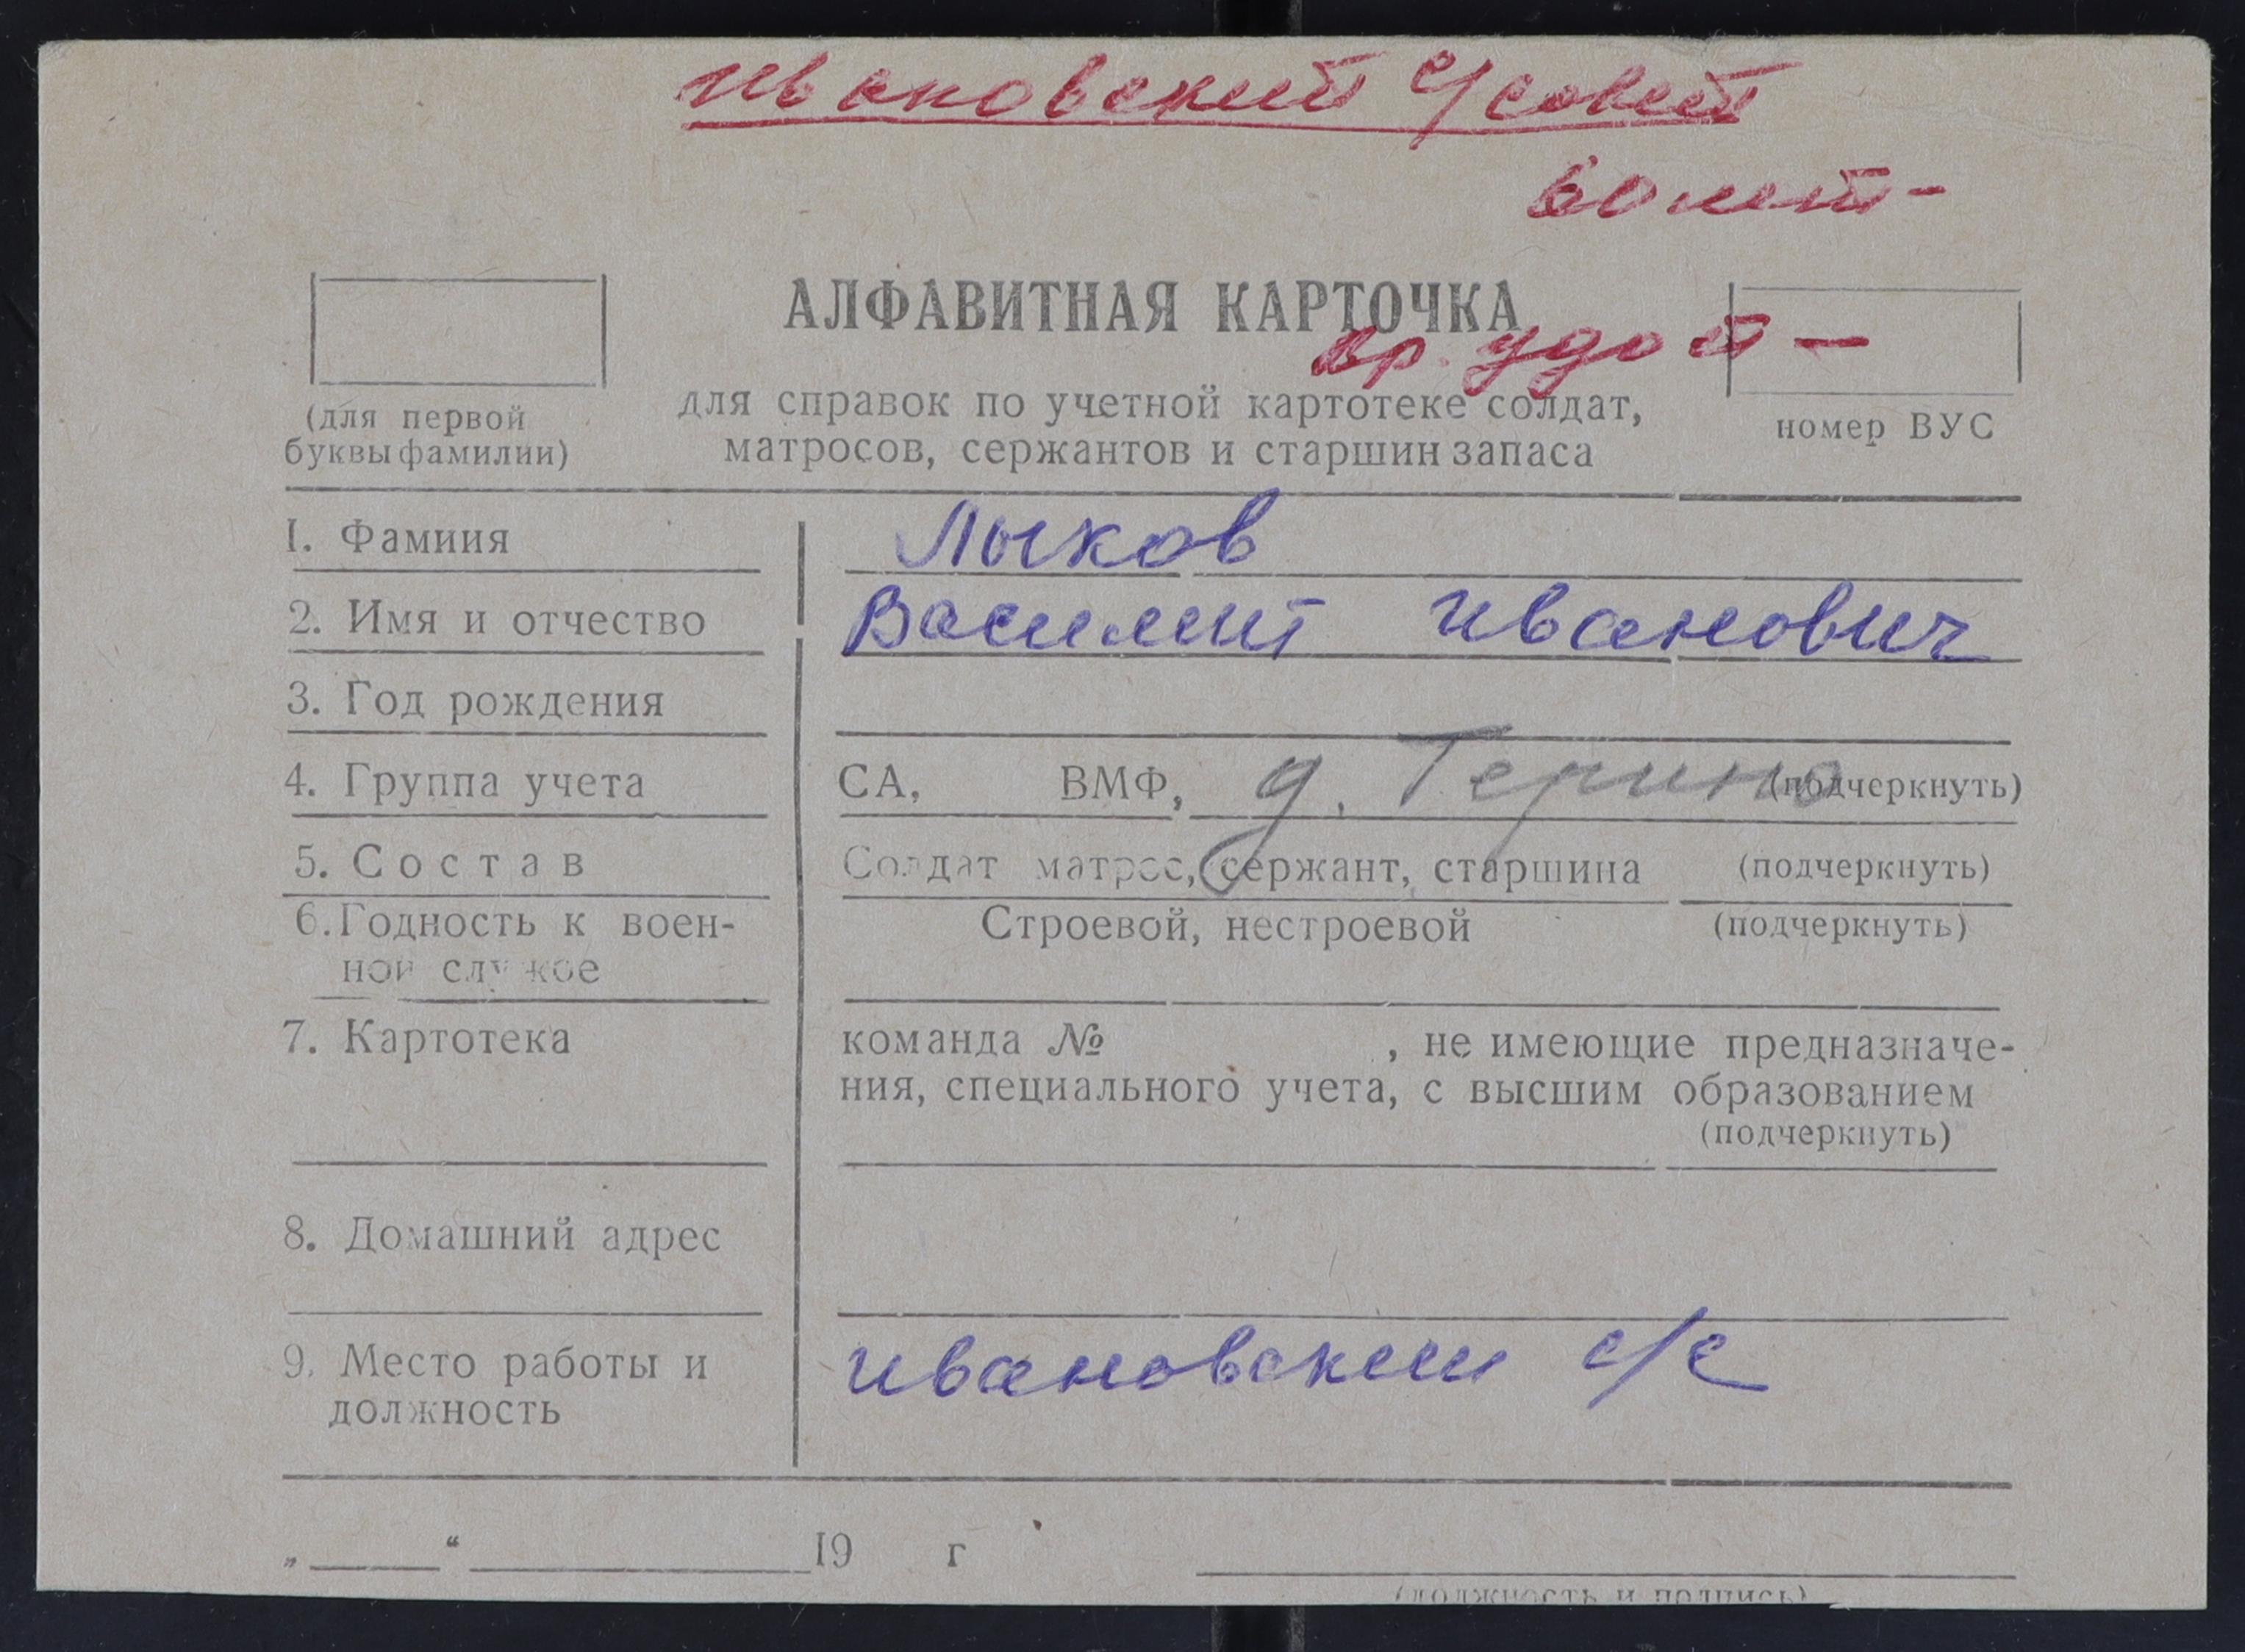 Ивановский с/совет
60 лет-
АЛФАВИТНАЯ КАРТОЧКА
вр. удост-
(для первой
буквы фамилии)
для справок по учетной картотеке солдат,
матросов, сержантов и старшин запаса
номер ВУС
1. Фамиия Лыков
2. Имя и отчество Василий Иванович
3. Год рождения
4. Группа учета СА, ВМФ, д. Терино (подчеркнуть)
5. Состав Солдат матрос, сержант, старшина (подчеркнуть)
6. Годность к воен- Строевой, нестроевой (подчеркнуть)
ной службе
7. Картотека команда № , не имеющие предназначе-
ния, специального учета, с высшим образованием
(подчеркнуть)
8. Домашний адрес
9. Место работы и Ивановский с/с
должность
„ “ 19 г
(должность и подпись)